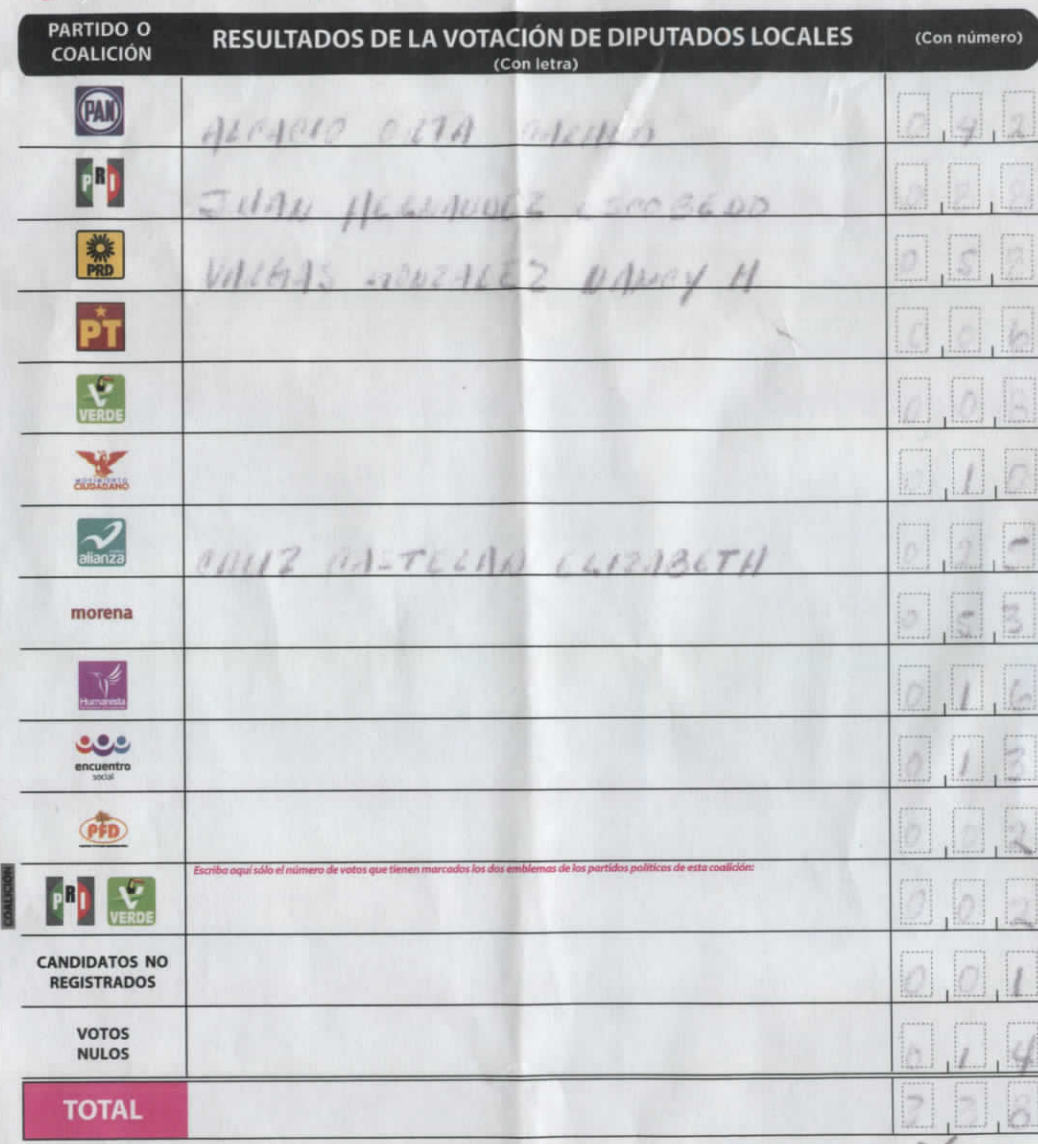 PARTIDO O COALICIÓN
RESULTADOS DE LA VOTACIÓN DE DIPUTADOS LOCALES
(Con letra)
(Con número)
PAN
0 4 2
PRI
JUAN HERNANDEZ ESCOBEDO
PRD
VARGAS GONZALEZ NANCY H
0 5
PT
0 0 6
VERDE
0 0 8
MOVIMIENTO CIUDADANO
0 1 0
alianza
CRUZ CASTELAN ELIZABETH
0 2
morena
0 5 3
Humanista
0 1 6
encuentro social
0 1 3
PFD
0 0 2
COALICIÓN
Escriba aquí sólo el número de votos que tienen marcados los dos emblemas de los partidos políticos de esta coalición:
PRI VERDE
0 0 2
CANDIDATOS NO REGISTRADOS
0 0 1
VOTOS NULOS
0 1 4
TOTAL